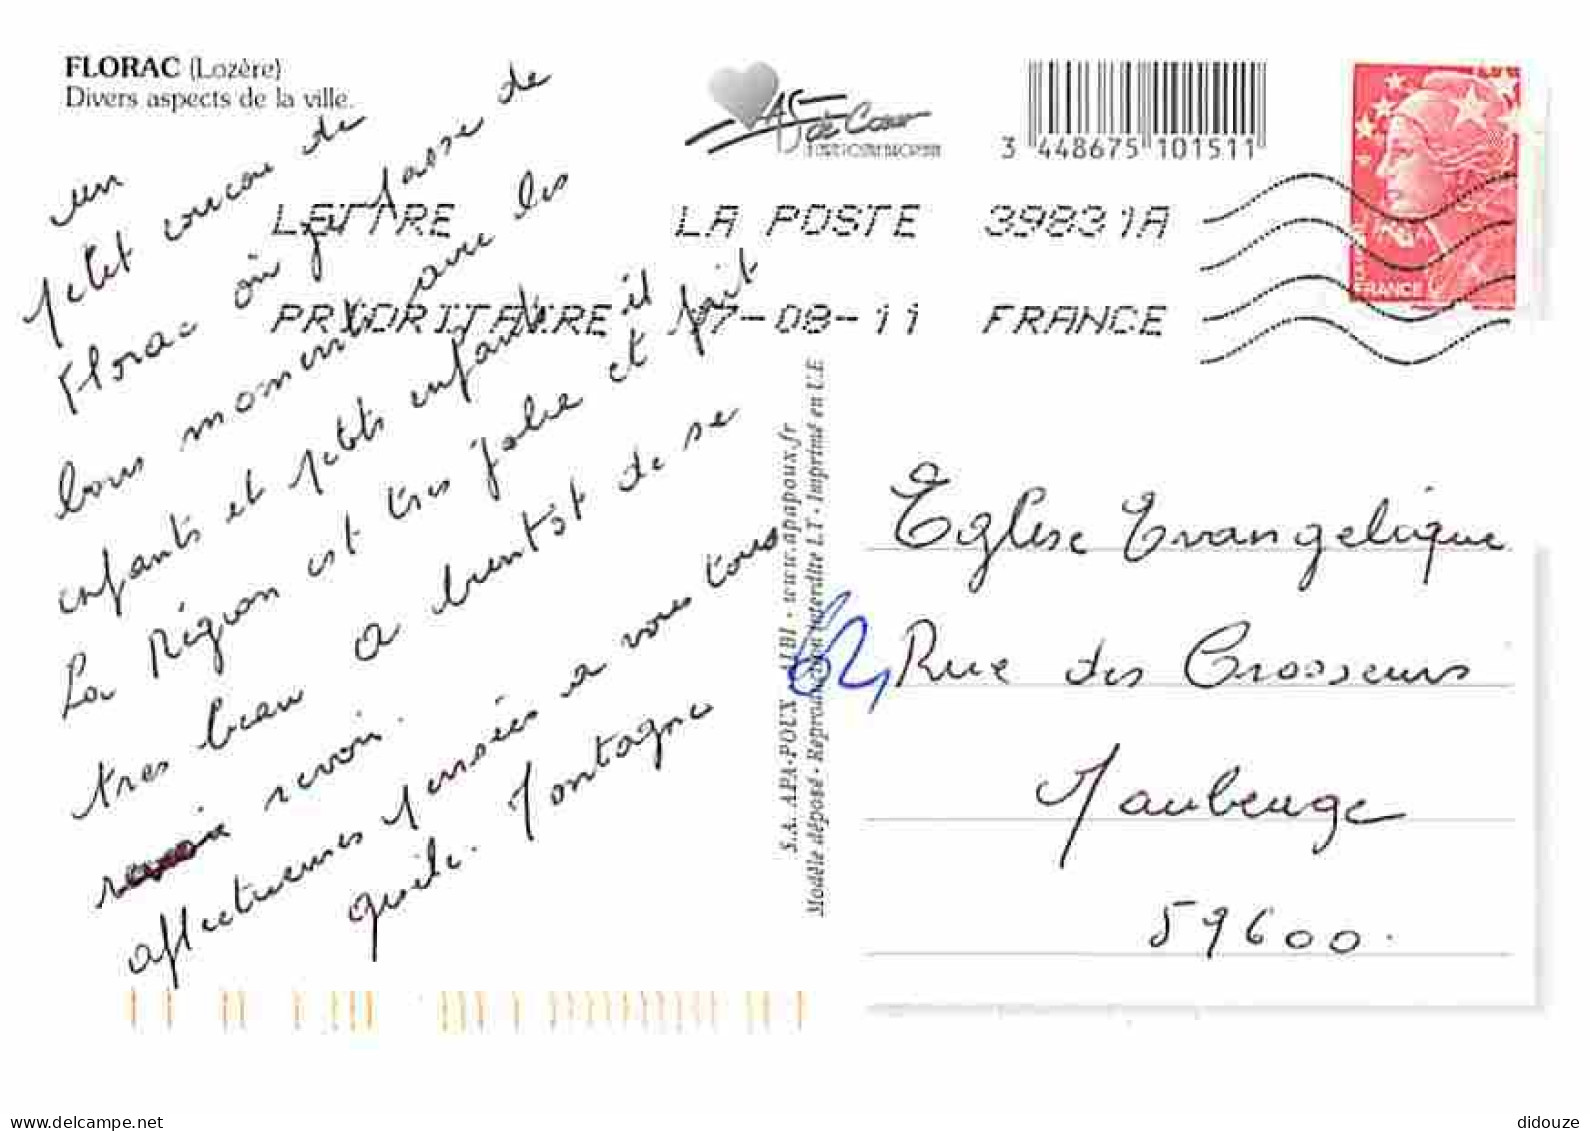 FLORAC (Lozère)
Divers aspects de la ville.
As de Cœur
3 448675 101511
LETTRE LA POSTE 39831A
PRIORITAIRE 17-08-11 FRANCE
FRANCE
un
petit coucou de
Florac où je passe de
bons moments avec les
enfants et petits enfants il
La Région est tres jolie et fait
tres beau a bientôt de se
revoir.
affectueuses pensées a vous tous
Montagne
S.A. APA-POUX - ALBI - www.apapoux.fr
Modèle déposé - Reproduction interdite L.T - Imprimé en U.E
62
Eglise Evangelique
Rue des
Maubeuge
59600.
delcampe.net
didouze